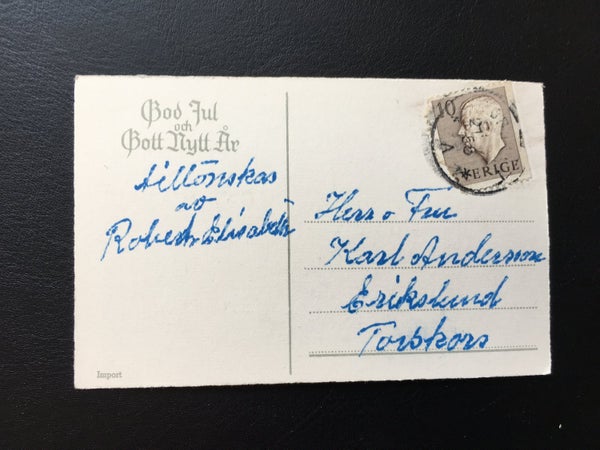 God Jul
och
Gott Nytt År
tillönskas
av
Robert Elisabeth
Import
SVERIGE
Herr o Fru
Karl Andersson
Erikslund
Torskors